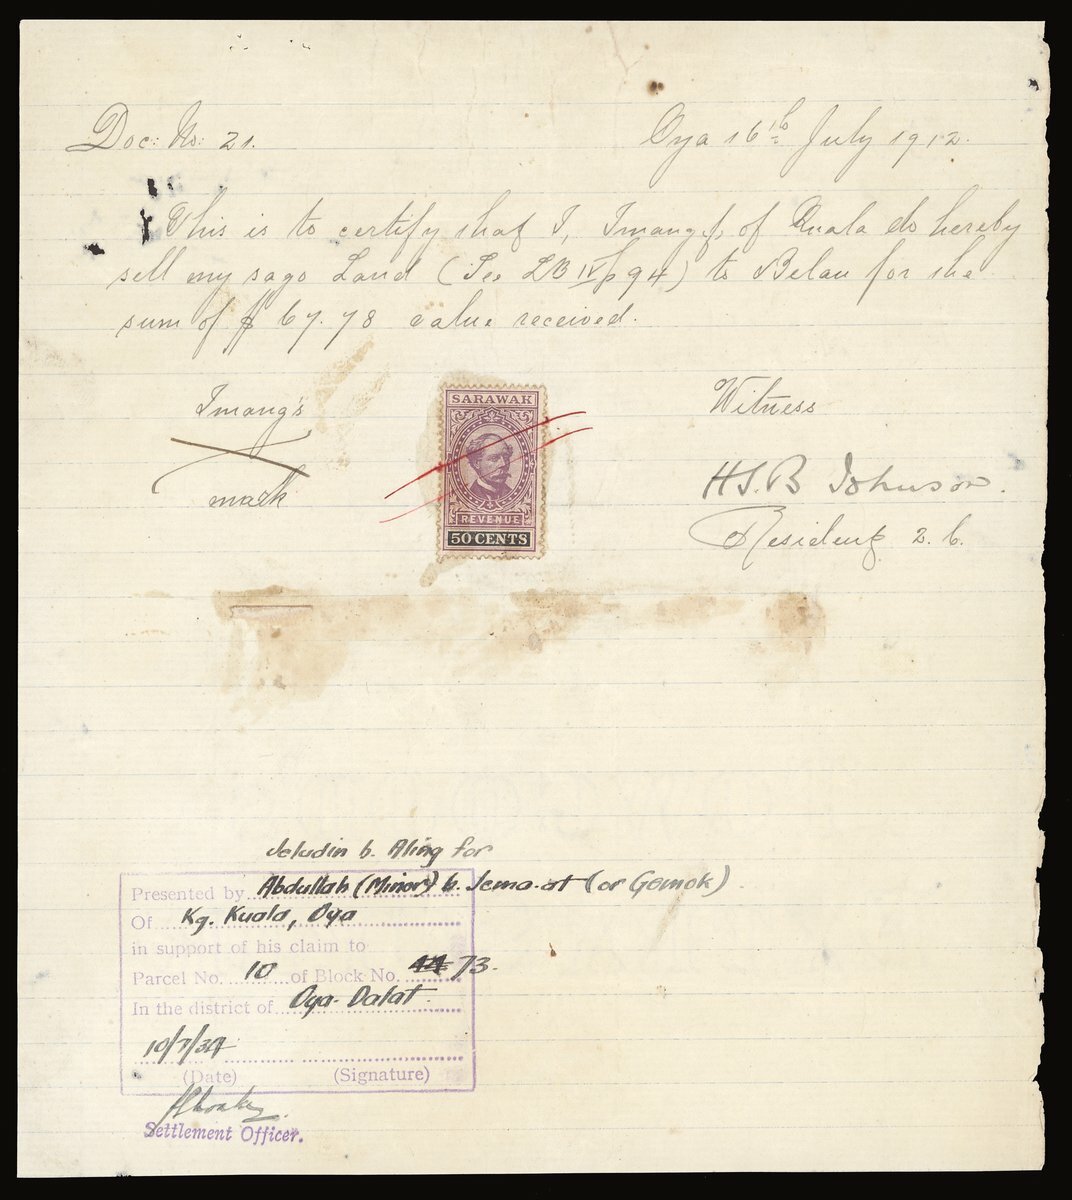 Doc: No: 21.
Oya 16th July 1912.
This is to certify that I, Imang f. of Kuala do hereby
sell my sago Land (See LB IV p 94) to Belau for the
sum of $ 67.78 value received.
Imang's
X
mark
SARAWAK
REVENUE
50 CENTS
Witness
H.S.B Johnson.
Resident 2. C.
Jeludin b. Aling for
Presented by Abdullah (Minor) b. Jema-at (or Gemok)
Of Kg. Kuala, Oya
in support of his claim to
Parcel No. 10 of Block No. 44 73.
In the district of Oya-Dalat.
10/7/34
(Date) (Signature)
Settlement Officer.